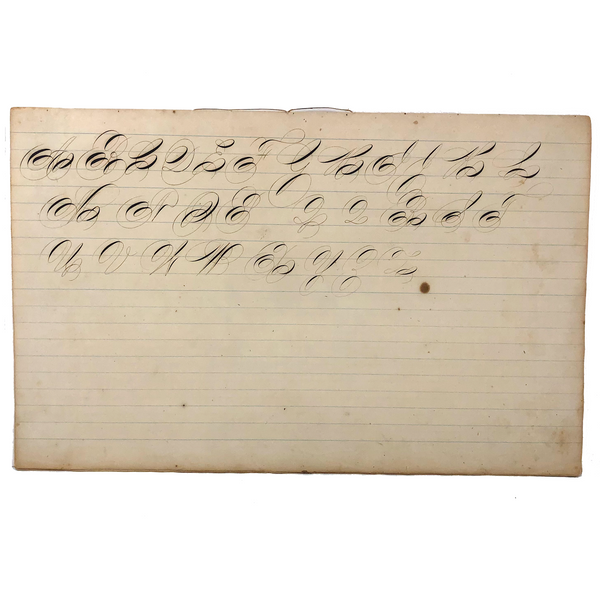 A B C D E F G H I J K L
M N O P Q Q R S T
U V W X Y Z